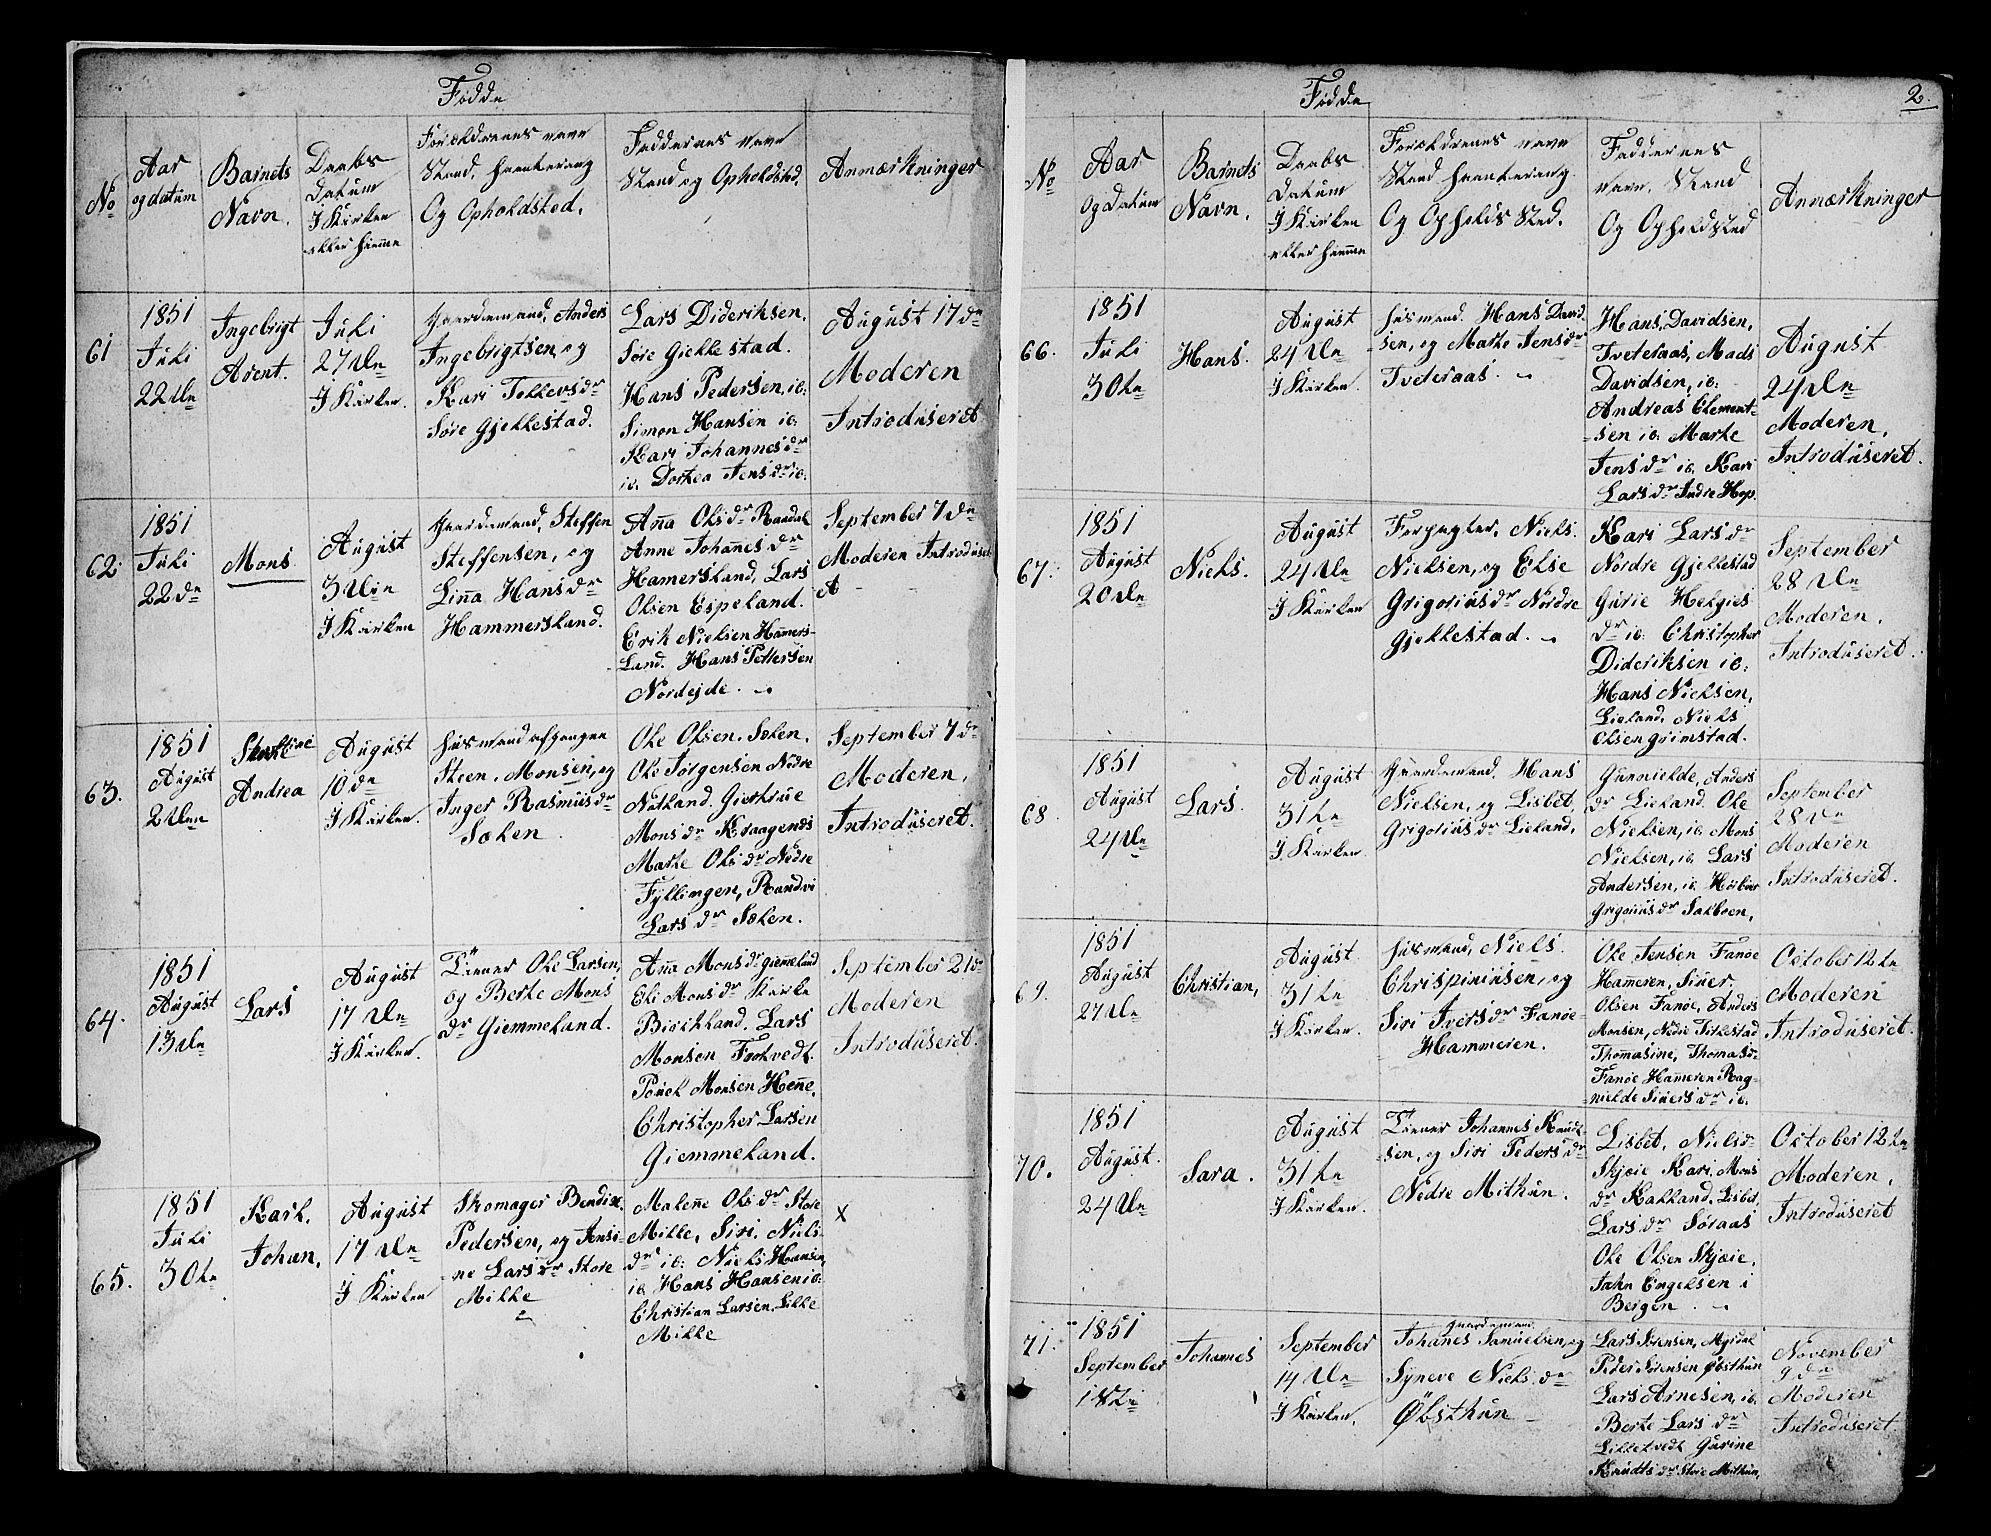 Fødde
No
Aar
og datum
Barnets
Navn.
Daabs
Datum
I Kirken
eller hiemme
Foreldrenes navn
Stand, haantering
Og Opholdsted.
Faddernes navn
Stand og Opholdsted.
Anmærkninger
61
1851
Juli
22de
Ingebrigt
Arent.
Juli
27de
I Kirken.
Gaardemand, Anders
Ingebrigtsen, og
Kari Tollevsdr
Søre Gjellestad.
Lars Dideriksen.
Søre Giellestad.
Hans Pedersen, ib:
Simon Hansen ib:
Kari Johannesdr
ib. Dorthea Jensdr ib:
August 17de
Moderen
Introduseret
62
1851
Juli
22de
Mons
August
3die
I Kirken
Gaardemand, Steffen
Steffensen, og
Linna Hansdr
Hammersland.
Anna Olsdr Raadal
Anne Johannesdr
Hamersland, Lars
Olsen Espeland.
Erik Nielsen Hamers-
land. Hans Pettersen
Nordejde.
September 7de
Moderen Introduser
et
63.
1851
August
2den
Andrea
August
10de
I Kirken.
Husmand afgangen
Steen, Monsen, og
Inger Rasmusdr
Sælen
Ole Olsen. Sælen.
Ole Jørgensen Nedre
Natland. Giertrue
Monsdr Kraagenæs
Marte Olsdr Nedre
Fyllingen, Randvi
Larsdr Sælen.
September 7de
Moderen,
Introduseret.
64.
1851
August
13de
Lars
August
17de
I Kirken.
Tienner Ole Larsen,
og Berte Mons
dr Giemmeland.
Anna Monsdr giemeland
Eli Monsdr Kirke
Birckland. Lars
Monsen Tortvedt
Pouel Monsen Hønne,
Christopher Larsen
Giemmeland.
September 21de
Moderen
Introduseret.
65.
1851
Juli
30te
Karl.
Johan,
August
17de
I Kirken
Skomager Bendix
Pedersen, og Jensi-
ne Larsdr Store
Milde
Malenne Olsdr Store
Milde, Siri, Niels
dr ib: Niels Hansen,
ib. Hans Hansen ib:
Christian Larsen. Lille
Milde
X
Fødde
2.
No
Aar
Og Datum
Barnets
Navn.
Daabs
Datum
I Kirken
eller hiemme
Foreldrenes navn
Stand haantering
Og Opholds Sted.
Faddernes
navn, Stand
Og Opholdsted
Anmærkninger
66.
1851
Juli
30te
Hans.
August
24de
I Kirken.
Husmand. Hans David
sen, og Marte Jensdr
Tveteraas.
Hans, Davidsen,
Tveteraas, Mads
Davidsen, ib:
Andreas Clement-
-sen ib: Marte
Jensdr ib. Kari
Larsdr Indre Hop.
August
24de
Moderen,
Introduseret.
67.
1851
August
20de
Niels.
August
24de
I Kirken
Forpagter, Niels.
Nielsen, og Else
Grigoriusdr Nordre
Gjellestad.
Kari Larsdr
Nordre Gjellestad
Gurie Helgies
dr ib: Christopher
Dideriksen ib:
Hans Nielsen,
Lieland, Niels
Olsen grimstad.
September
28de
Moderen.
Introduseret.
68
1851
August
24de
Lars.
August
31te
I. Kirken.
Gaardemand. Hans
Nielsen, og Lisbet
Grigoriusdr Lieland,
Gunnielde, Anders
dr Lieland. Ole
Nielsen, ib. Mons
Nielsen, ib. Lars
Andersen, ib.
Grigoriusdr Salboen,
September
28de
Moderen
Introduseret.
69.
1851
August
27de
Christian,
August.
31te
I Kirken.
Husmand, Niels.
Chrispiniusen, og
Siri Iversdr Fanøe-
Hammeren.
Ole Jensen Fanøe
Hameren, Siver.
Olsen Fanøe, Anders
Monsen, Nedre Titlestad
Thomasine, Thomasdr
Fanøe Hameren Rag-
-nielde Siversdr ib.
October 12te
Moderen
Introduseret.
70.
1851
August.
24de
Sara.
August
31te
I Kirken.
Tienner Johannes Knud-
-sen, og Siri Pedersdr
Nedre Mithun.
Lisbet, Nielsdr
Skjæie Kari. Mons
dr Kalland, Lisbet
Larsdr Søraas
Ole Olsen Skjæie,
Jahn Engelsen i
Bergen.
October 12te
Moderen,
Introduseret
71.
1851
September
1ste
Johannes
September
14de
I Kirken.
Gaardemand.
Johanes Samuelsen, og
Syneve Nielsdr
Øbsthun
Lars Sørensen, Myrdal
Peder Sørensen Øbsthun
Lars Arnesen, ib.
Berte Larsdr
Litletvedt Gurine
Knudtsdr Store Mithun,
November
9de
Moderen
Introduseret.